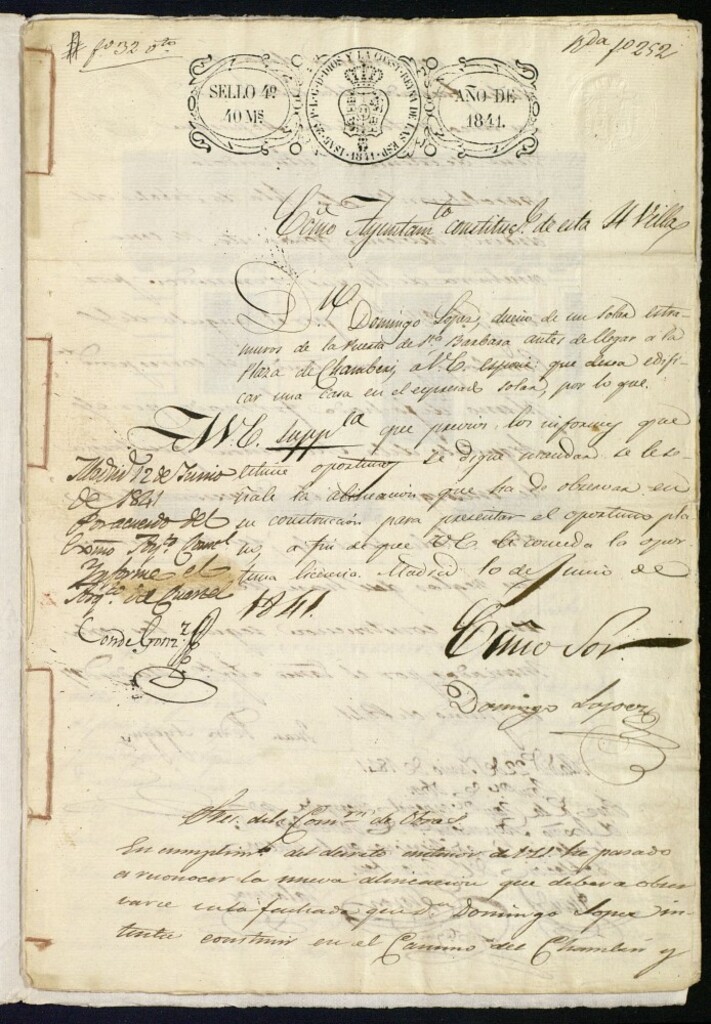 fo 32 vto
Rda fo 252
SELLO 4º
40 Ms
ISAB. 2ª P. L. G. D. DIOS Y LA CONST. REYNA DE LAS ESP. 1841
AÑO DE
1841.
Ecmo Ayuntamto constitucl. de esta H Villa
Dn Domingo Lopez, dueño de un solar estra-
muros de la Puerta de Sta Barbara antes de llegar a la
Plaza de Chamberi, a V.E. espone: que desea edifi-
car una casa en el espresado solar, por lo que.
A V.E. suppca que previos los informes que
estime oportunos se digne mandar se le se-
ñale la alineacion que ha de observar en
su construccion para presentar el oportuno pla
no, a fin de que V.E. le conceda la opor
tuna licencia. Madrid 10 de Junio de
1841.
Madrid 12 de Junio
de 1841
Por acuerdo del
Exmo Aytto Constl
Informe el
Arqto del Cuartel
Conde Gonz
Exmo Sor.
Domingo Lopez
Sres. de la Comn de Obras
En cumplimto del decreto anterior de V.S. he pasado
a reconocer la nueva alineacion que debera obser
varse en la fachada que Dn Domingo Lopez in-
tenta construir en el Camino de Chamberi y